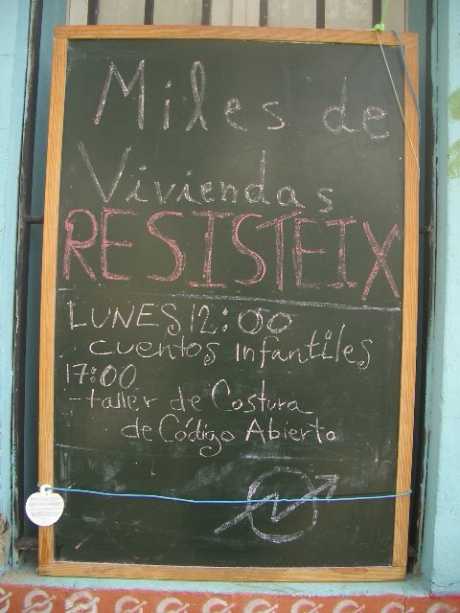 Miles de
Viviendas
RESISTEIX
LUNES 12:00
cuentos infantiles
17:00
-taller de Costura
de Código Abierto